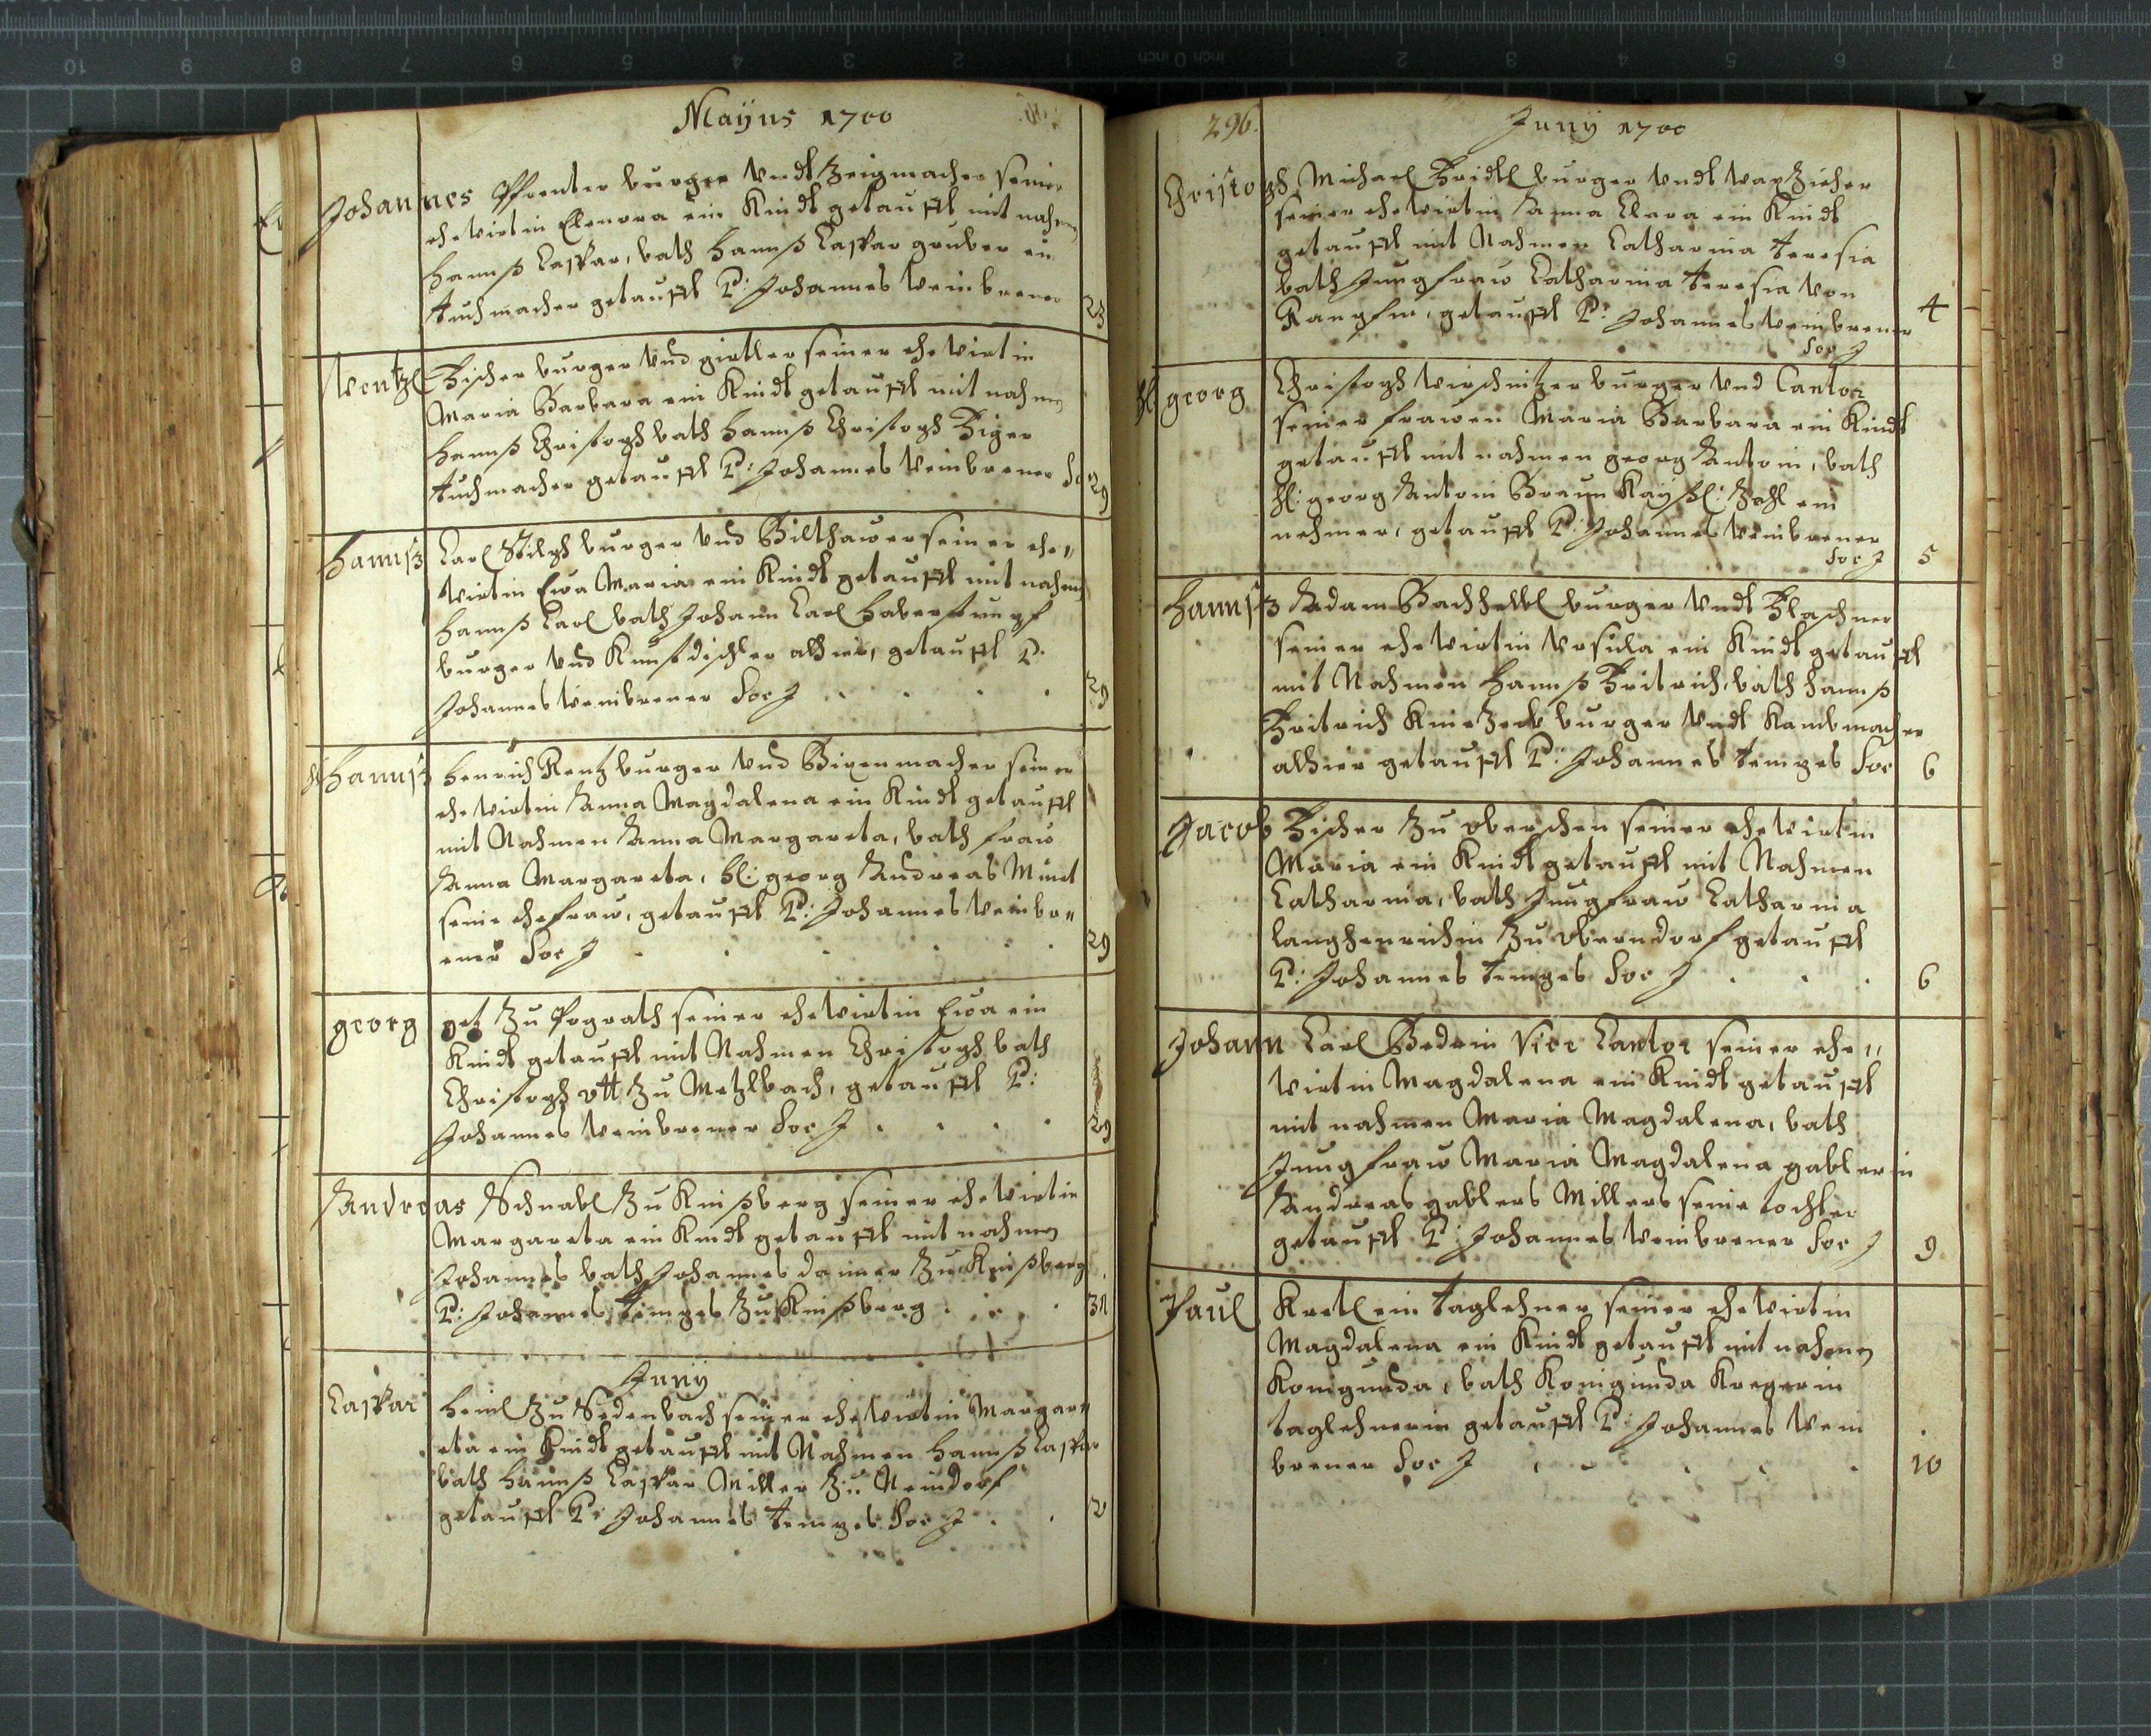 Mayus 1700
Johannes Pfrenter burger undt Zeigmacher seiner
ehewirtin Elenora ein Kindt getaufft mit nahmen
Hannß Caspar, bath Hannß Caspar gruber ein
tuchmacher getaufft P: Johannes Weinbrener
23
Wentzl Fischer burger und girtler seiner ehewirtin
Maria Barbara ein Kindt getaufft mit nahmen
Hannß Christoph bath Hannß Christoph
tuchmacher getaufft P: Johannes Weinbrener So
29
Hannß Carl Stilph burger und Bilthawer seiner ehe„
wirtin Eva Maria ein Kindt getaufft mit nahmen
Hannß Carl bath Johann Carl Haberstrumpf
burger und Kunstdischler alhier, getaufft P.
Johannes Weinbrener Soc J
29
H: Hannß Henrich Rentz burger und Bixenmacher seiner
ehewirtin Anna Magdalena ein Kindt getaufft
mit Nahmen Anna Margareta, bath fraw
Anna Margareta, H: georg Andreas Minet
seine ehefraw, getaufft P: Johannes Weinbr„
ener Soc J
29
georg getz Zu Pograth seiner ehewirtin Eva ein
Kindt getaufft mit Nahmen Christoph bath
Christoph ott Zu Metzlbach, getaufft P:
Johannes Weinbrener Soc J
29
Andreas Schnabl Zu Kinßberg seiner ehewirtin
Margareta ein Kindt getaufft mit nahmen
Johannes bath Johannes danner Zu Kinßberg
P: Johannes Temges Zu Kinßberg
31
Juny
Caspar Heinl Zu Sedenbach seiner ehewirtin Margar„
eta ein Kindt getaufft mit Nahmen Hannß Caspar
bath Hannß Caspar Miller Zu Neindorf
getaufft P: Johannes Temges Soc J
2
296.
Juny 1700
Christoph Michael Bridtl burger undt waxZieher
seiner ehewirtin Anna Clara ein Kindt
getaufft mit Nahmen Catharina Teresia
bath Jungfraw Catharina Teresia von
getaufft P: Johannes Weinbrener
Soc J
4
H: georg Christoph Wirschnitzer burger und Cantor
seiner frawen Maria Barbara ein Kindt
getaufft mit nahmen georg Antoni, bath
H: georg Antoni Braun Kay: H: Zohl ein
nehmer, getaufft P: Johannes Weinbrener
Soc J
5
Hannß Adam Bachhelbl burger undt Flaschner
seiner ehewirtin Ursula ein Kindt getaufft
mit Nahmen Hannß Fritrich, bath Hannß
Fritrich burger undt Kambmacher
alhier getaufft P: Johannes Temges Soc
6
Jacob Fischer Zu seiner ehewirtin
Maria ein Kindt getaufft mit Nahmen
Catharina, bath Jungfraw Catharina
langhenrichin Zu oberndorf getaufft
P: Johannes Temges Soc J
6
Johann Carl Bedrin Vice Cantor seiner ehe„
wirtin Magdalena ein Kindt getaufft
mit nahmen Maria Magdalena, bath
Jungfraw Maria Magdalena gablerin
Andreas gablers Millers seine tochter
getaufft P: Johannes Weinbrener Soc J
9
Paul Kretl ein taglehner seiner ehewirtin
Magdalena ein Kindt getaufft mit nahmen
Konigunda, bath Konigunda Kregerin
taglehnerin getaufft P: Johannes Wein
brener Soc J
10